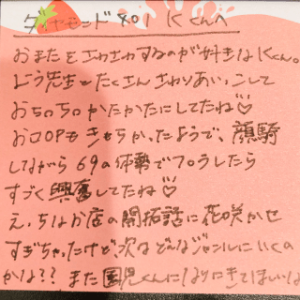 ダイヤモンド801 Kくんへ
おまたをさわさわするのが好きなKくん。
よう先生とたくさんさわりあいっこして
おちのちのかたかたにしてたね♡
お口OPもきもちかったようで、顔騎
しながら69の体勢でフロラしたら
すごく興奮してたね♡
えっちなお店の開拓話に花咲かせ
すぎちゃったけど、次はどんなジャンルにいくの
かな?? また園児くんになりにきてほしいな